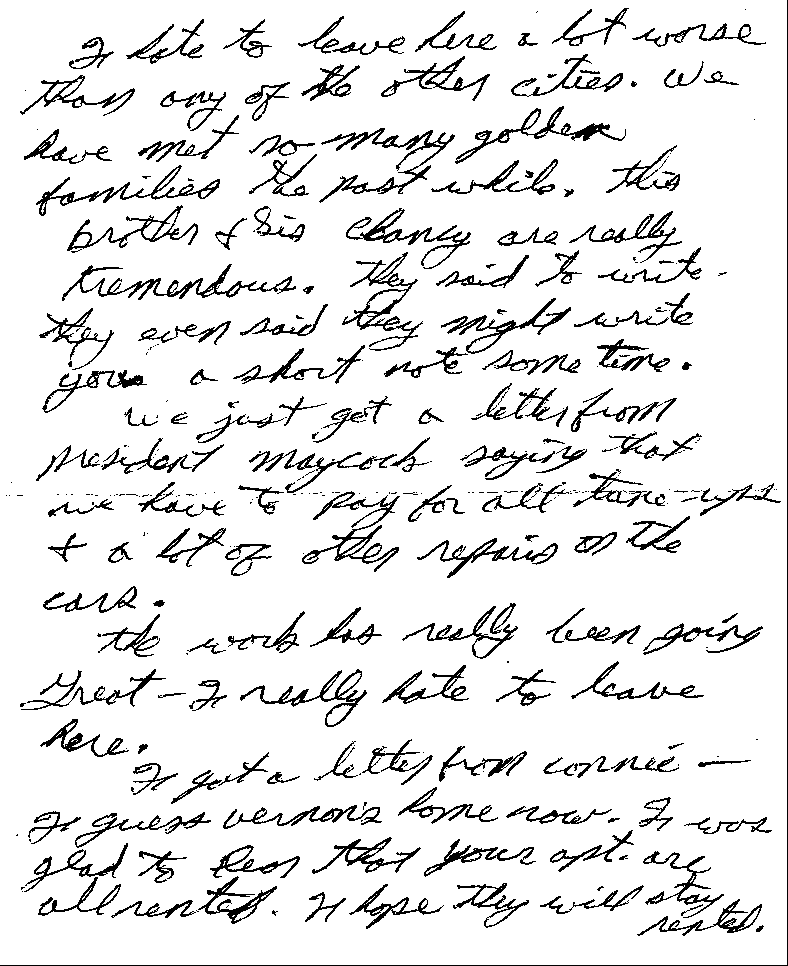 I hate to leave here a lot worse
than any of the other cities. We
have met so many golden
families the past while. This
Brother & Sis Clancy are really
tremendous. They said to write -
they even said they might write
you a short note some time.
We just got a letter from
President Maycock saying that
we have to pay for all tune-ups
& a lot of other repairs on the
cars.
The work has really been going
Great - I really hate to leave
here.
I got a letter from Connie -
I guess Vernon's home now. I was
glad to hear that your apt. are
all rented. I hope they will stay
rented.